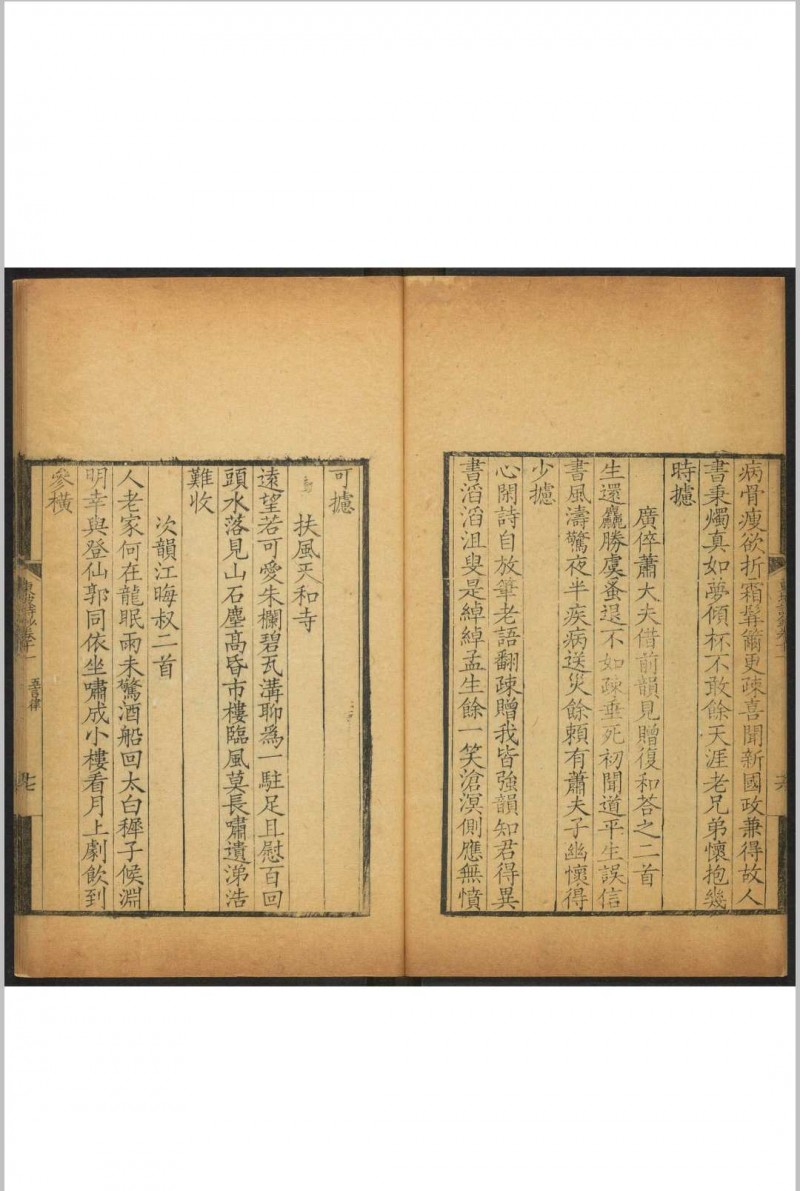 病骨瘦欲折霜髯籋更疎喜聞新國政兼得故人
書秉燭真如夢傾杯不敢餘天涯老兄弟懷抱幾
時攄
廣倅蕭大夫借前韻見贈復和荅之二首
生還麤勝虞蚤退不如疎垂死初聞道平生誤信
書風濤驚夜半疾病送災餘賴有蕭夫子幽懷得
少攄
心閑詩自放筆老語翻疎贈我皆強韻知君得異
書滔滔沮叟是綽綽孟生餘一笑滄溟側應無憤
可攄
扶風天和寺
遠望若可愛朱欄碧瓦溝聊為一駐足且慰百回
頭水落見山石塵高昏市樓臨風莫長嘯遺涕浩
難收
次韻江晦叔二首
人老家何在龍眠雨未驚酒船回太白穉子候淵
明幸與登仙郭同依坐嘯成小樓看月上劇飲到
參橫
五言律